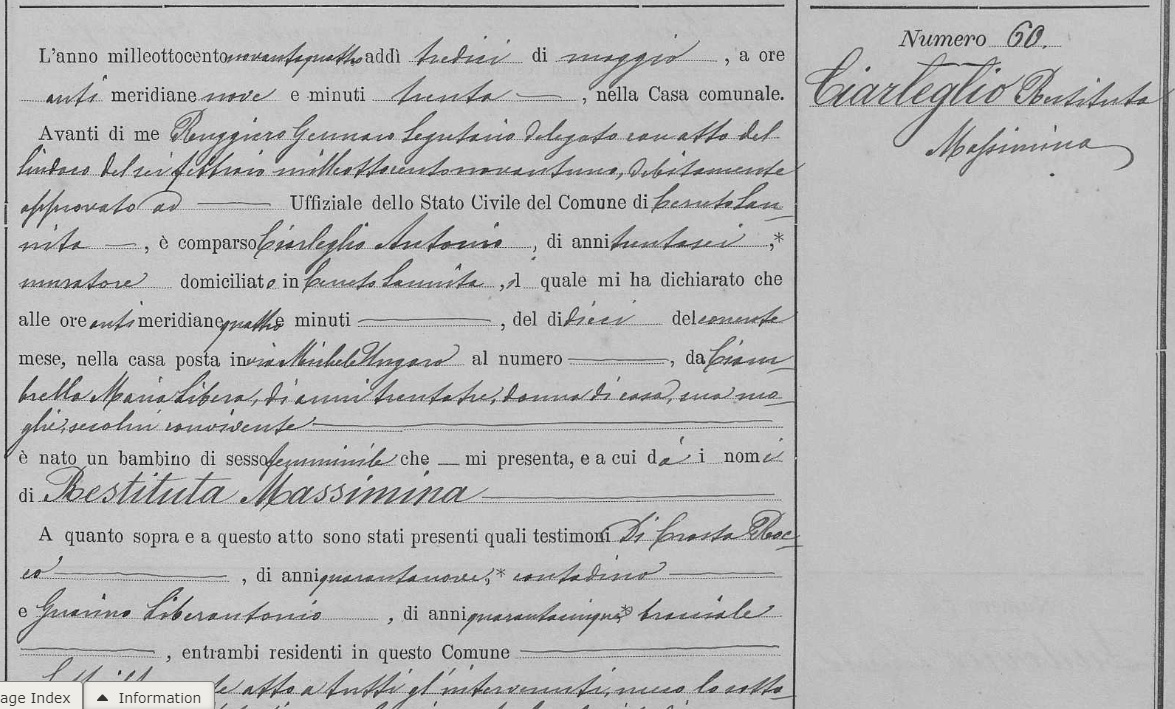 Numero 60.
Ciarleglio Restituta
Massimina
L'anno milleottocentonovantaquattro addì tredici di maggio, a ore
anti meridiane nove e minuti trenta, nella Casa comunale.
Avanti di me Ruggiero Gennaro Segretario delegato con atto del
Sindaco del sei febbraio milleottocentonovantuno, debitamente
approvato ad Uffiziale dello Stato Civile del Comune di Cerreto San-
nita, è comparso Ciarleglio Antonio, di anni trentasei,*
muratore domiciliato in Cerreto Sannita, il quale mi ha dichiarato che
alle ore anti meridiane quattro e minuti, del dì dieci del corrente
mese, nella casa posta in via Michele Ungaro al numero, da Ciam-
brella Maria Libera, di anni trentatre, donna di casa, sua mo-
glie, seco lui convivente
è nato un bambino di sesso femminile che mi presenta, e a cui dà i nomi
di Restituta Massimina
A quanto sopra e a questo atto sono stati presenti quali testimoni Di Crosta Roc-
co, di anni quarantanove,* contadino
e Guarino Liberantonio, di anni quarantacinque,* bracciale
, entrambi residenti in questo Comune
atto a tutti gl'intervenuti, meco lo sotto-
age Index
Information